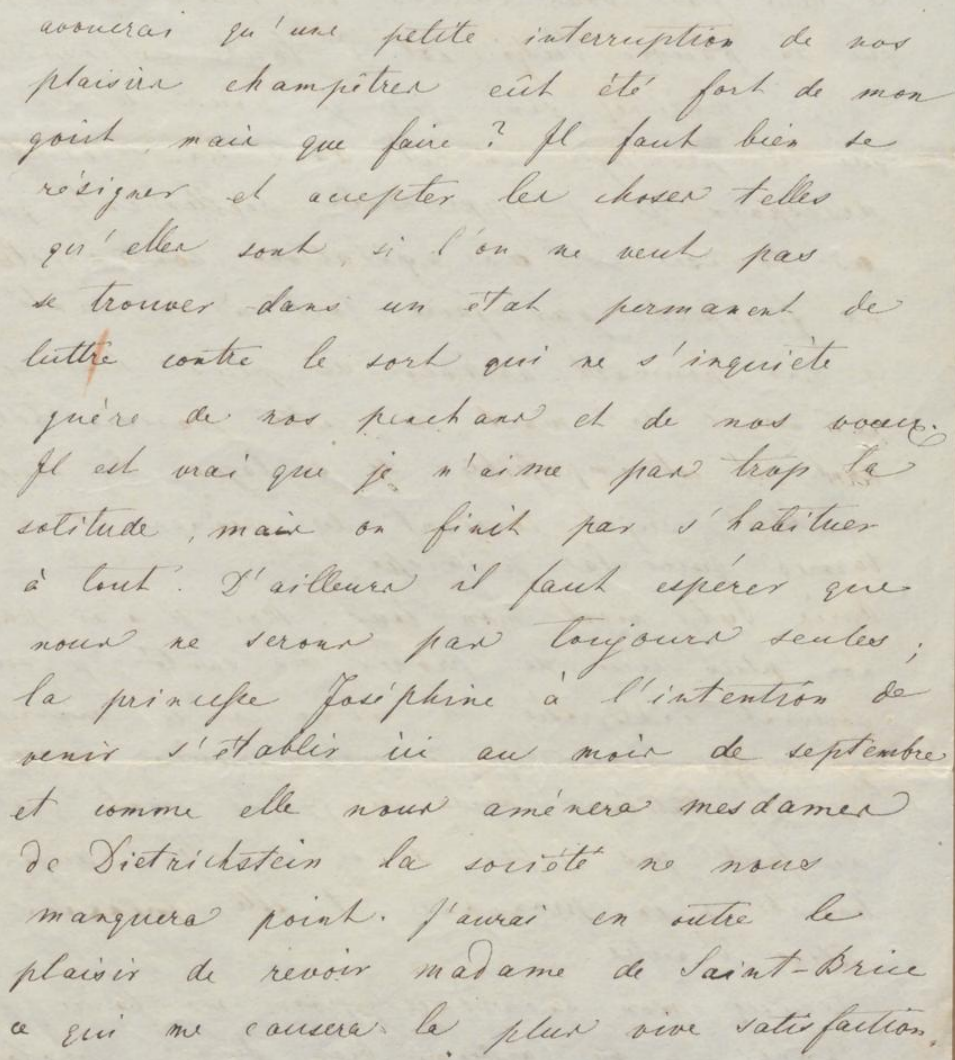 avouerai qu'une petite interruption de nos
plaisirs champêtres eût été fort de mon
goût, mais que faire ? Il faut bien se
résigner et accepter les choses telles
qu'elles sont si l'on ne veut pas
se trouver dans un état permanent de
luttre contre le sort qui ne s'inquiéte
guère de nos penchans et de nos voeux.
Il est vrai que je n'aime pas trop la
solitude, mais on finit par s'habituer
à tout. D'ailleurs il faut espérer que
nous ne serons pas toujours seules ;
la princesse Joséphine à l'intention de
venir s'établir ici au mois de septembre
et comme elle nous aménera mesdames
de Dietrichstein la société ne nous
manquera point. J'aurai en outre le
plaisir de revoir madame de Saint-Brice
ce qui me causera la plus vive satisfaction.